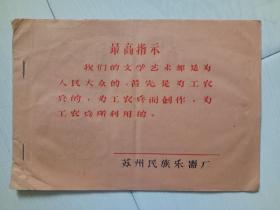 最高指示
我们的文学艺术都是为
人民大众的,首先是为工农
兵的,为工农兵而创作,为
工农兵所利用的。
苏州民族乐器厂